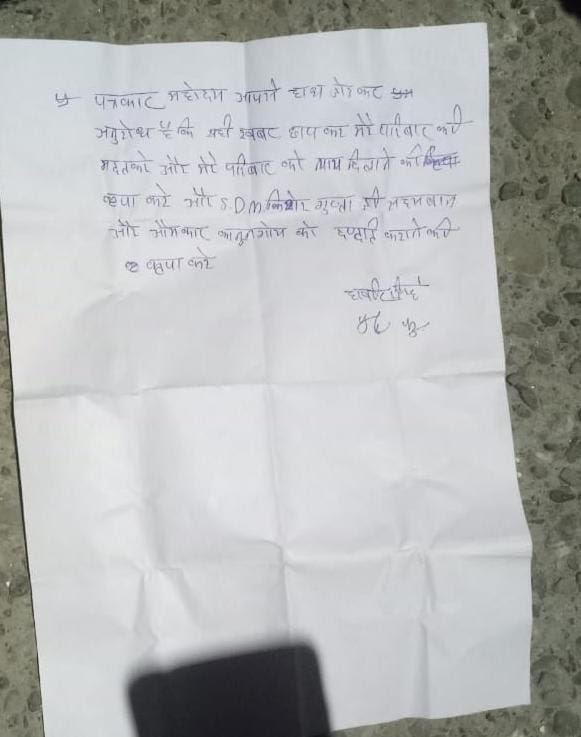 पत्रकार महोदय आपसे हाथ जोड़कर
अनुरोध है कि सही खबर छाप कर मेरे परिवार की
मदत करे और मेरे परिवार को न्याय दिलाने की
कृपा करे और S.D.M किशोर गुप्ता
और ओमकार कानूनगोय को कराने की
कृपा करे